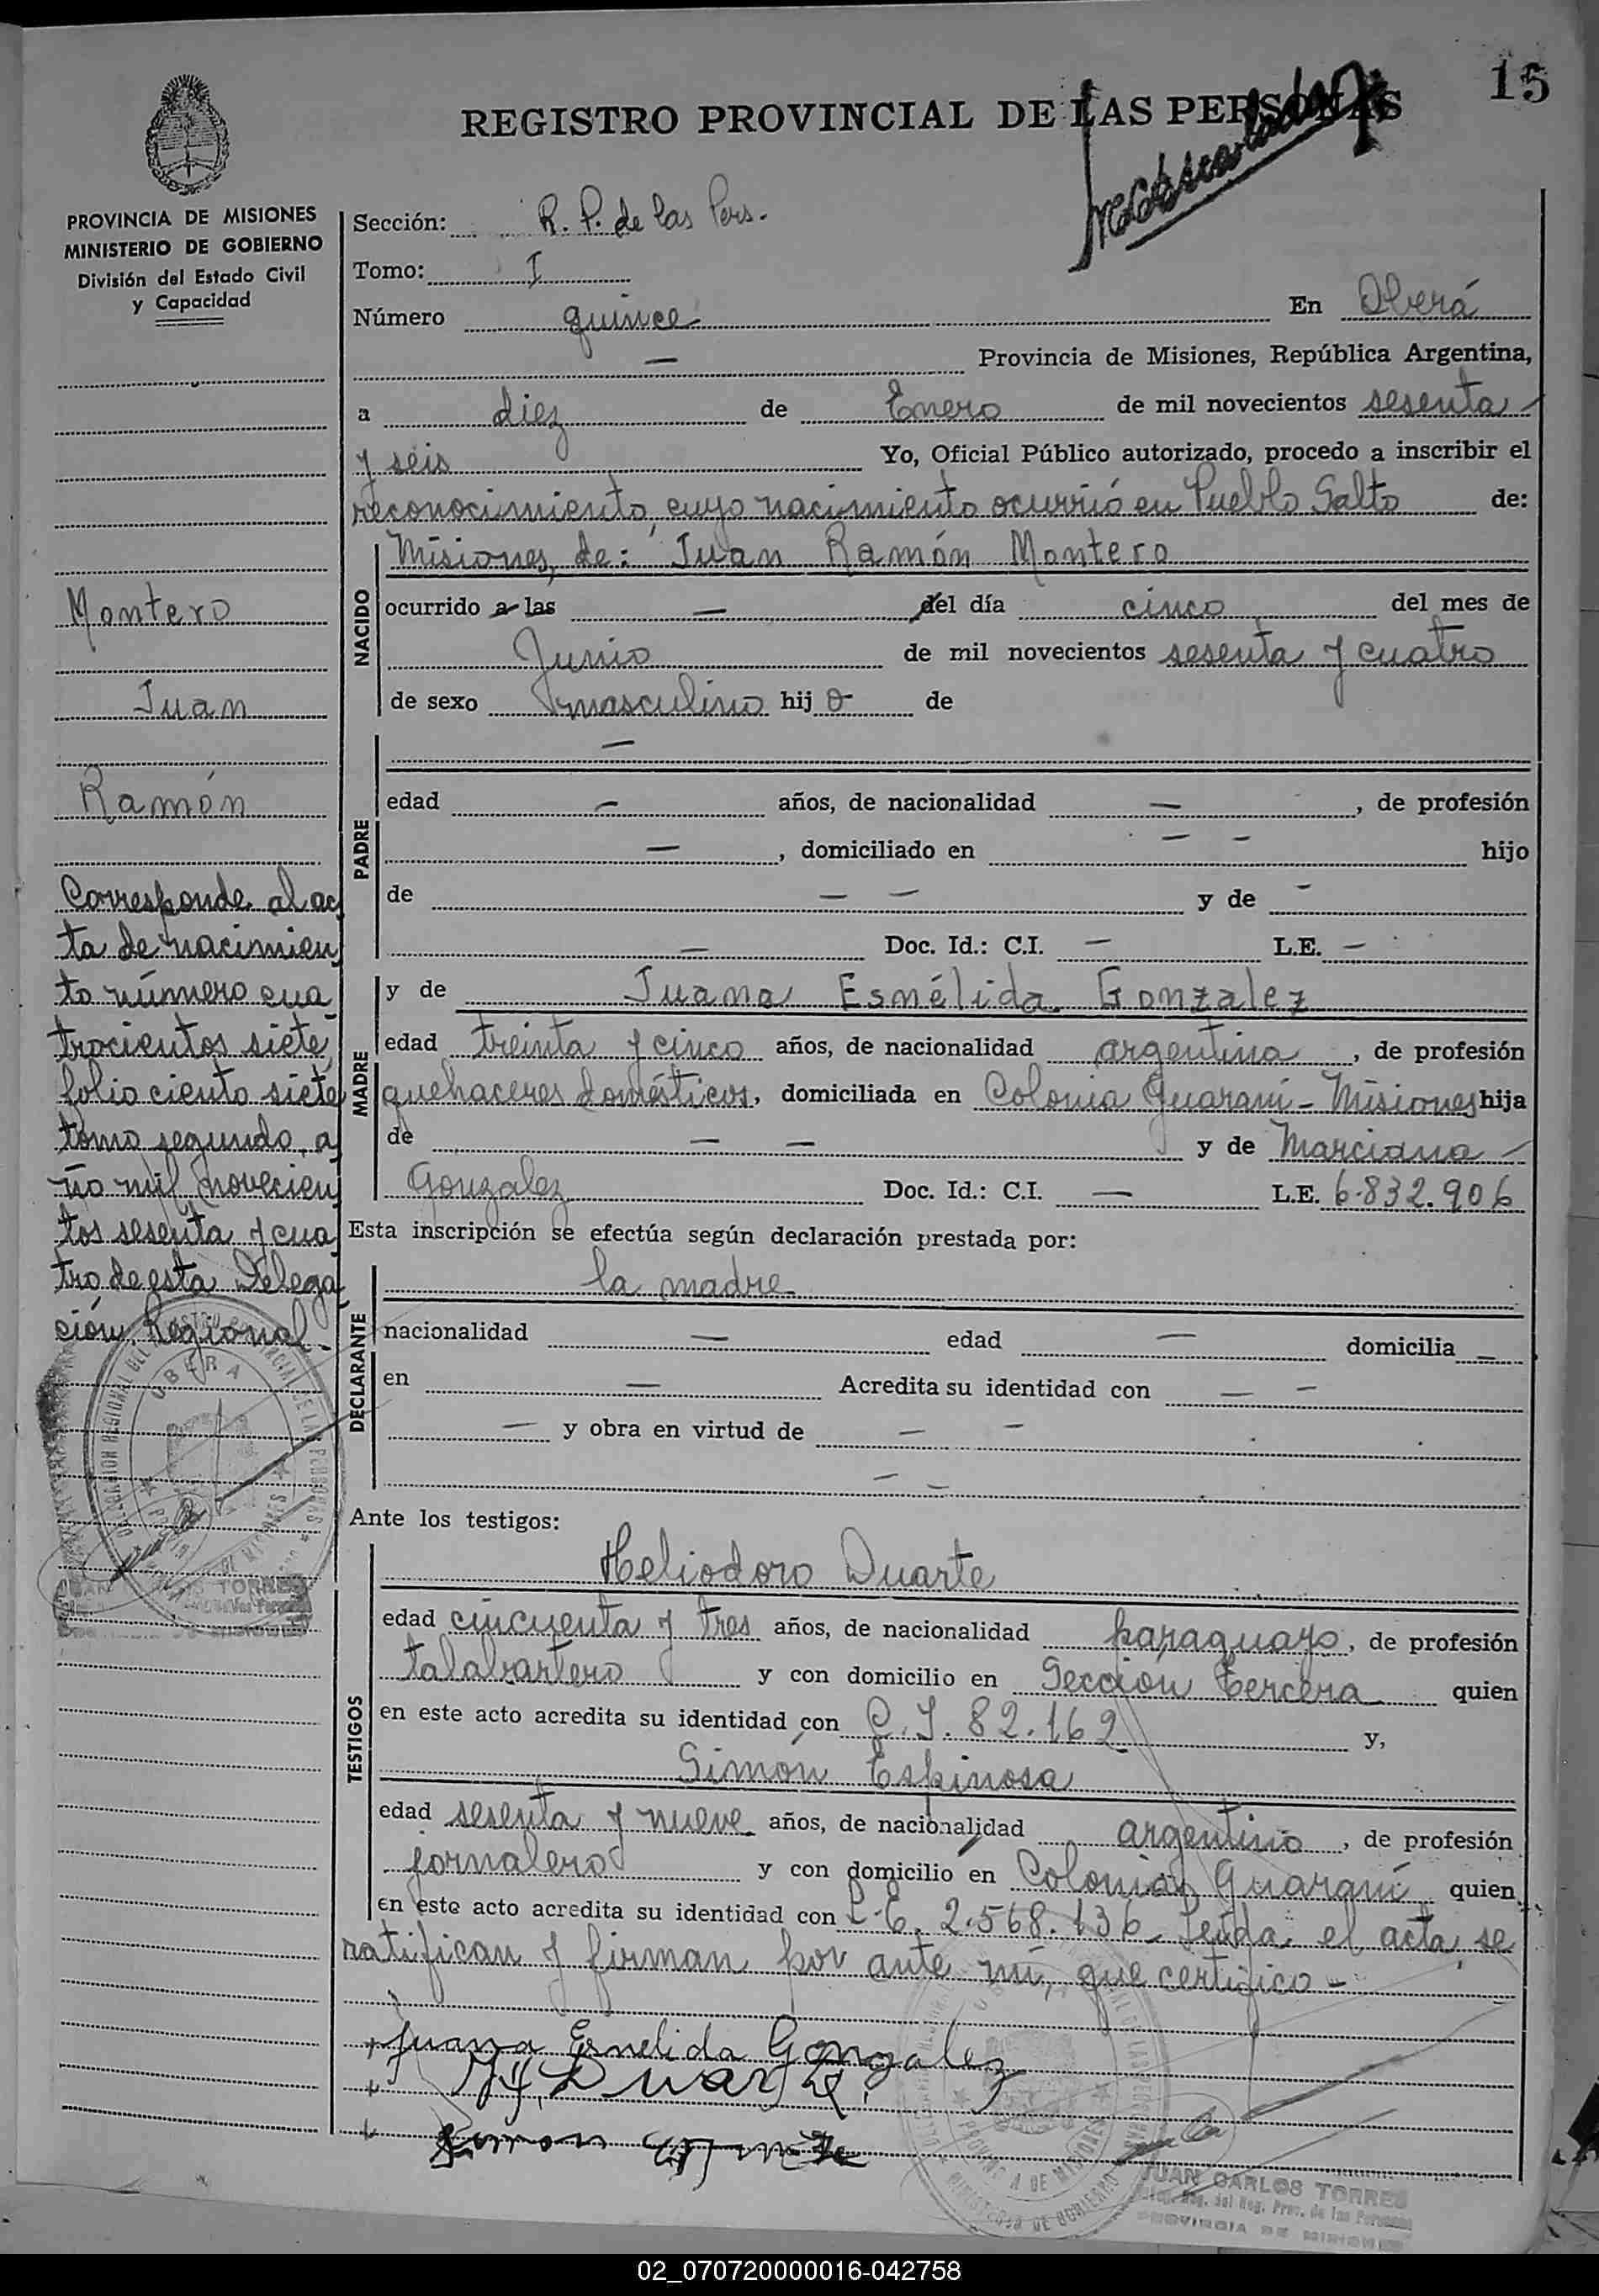 15
REGISTRO PROVINCIAL DE LAS PERSONAS
PROVINCIA DE MISIONES
MINISTERIO DE GOBIERNO
División del Estado Civil
y Capacidad
Sección: R. P. de las Pers.
Tomo: I
Número quince En Oberá
— Provincia de Misiones, República Argentina,
a diez de Enero de mil novecientos sesenta
y seis Yo, Oficial Público autorizado, procedo a inscribir el
reconocimiento, cuyo nacimiento ocurrió en Pueblo Salto de:
NACIDO
Misiones, de: Juan Ramón Montero
ocurrido a las — del día cinco del mes de
Junio de mil novecientos sesenta y cuatro
de sexo masculino hijo de
PADRE
—
edad — años, de nacionalidad —, de profesión
—, domiciliado en — — hijo
de — — y de -
— Doc. Id.: C.I. — L.E. —
MADRE
y de Juana Esnélida Gonzalez
edad treinta y cinco años, de nacionalidad argentina, de profesión
quehaceres domésticos, domiciliada en Colonia Guaraní - Misiones hija
de — — y de Marciana
Gonzalez Doc. Id.: C.I. — L.E. 6.832.906
Esta inscripción se efectúa según declaración prestada por:
DECLARANTE
la madre
nacionalidad — edad — domicilia —
en — Acredita su identidad con — —
— y obra en virtud de — —
— —
Ante los testigos:
TESTIGOS
Heliodoro Duarte
edad cincuenta y tres años, de nacionalidad paraguayo, de profesión
talabartero y con domicilio en Sección Tercera quien
en este acto acredita su identidad con C.I. 82.162 y,
Simón Espinosa
edad sesenta y nueve años, de nacionalidad argentino, de profesión
jornalero y con domicilio en Colonia Guaraní quien
en este acto acredita su identidad con L.E. 2.568.136 - Leída el acta, se
ratifican y firman por ante mí, que certifico -
Juana Esnelida Gonzalez
H. Duarte
Simon
JUAN CARLOS TORRES
Reg. del Reg. Prov. de las Personas
PROVINCIA DE MISIONES
Montero
Juan
Ramón
Corresponde al ac
ta de nacimien
to número cua
trocientos siete
folio ciento siete
tomo segundo, a
ño mil novecien
tos sesenta y cua
tro de esta Delega
ción Regional.
OBERA
TORRES
PROVINCIA DE MISIONES
MINISTERIO DE GOBIERNO
02_070720000016-042758